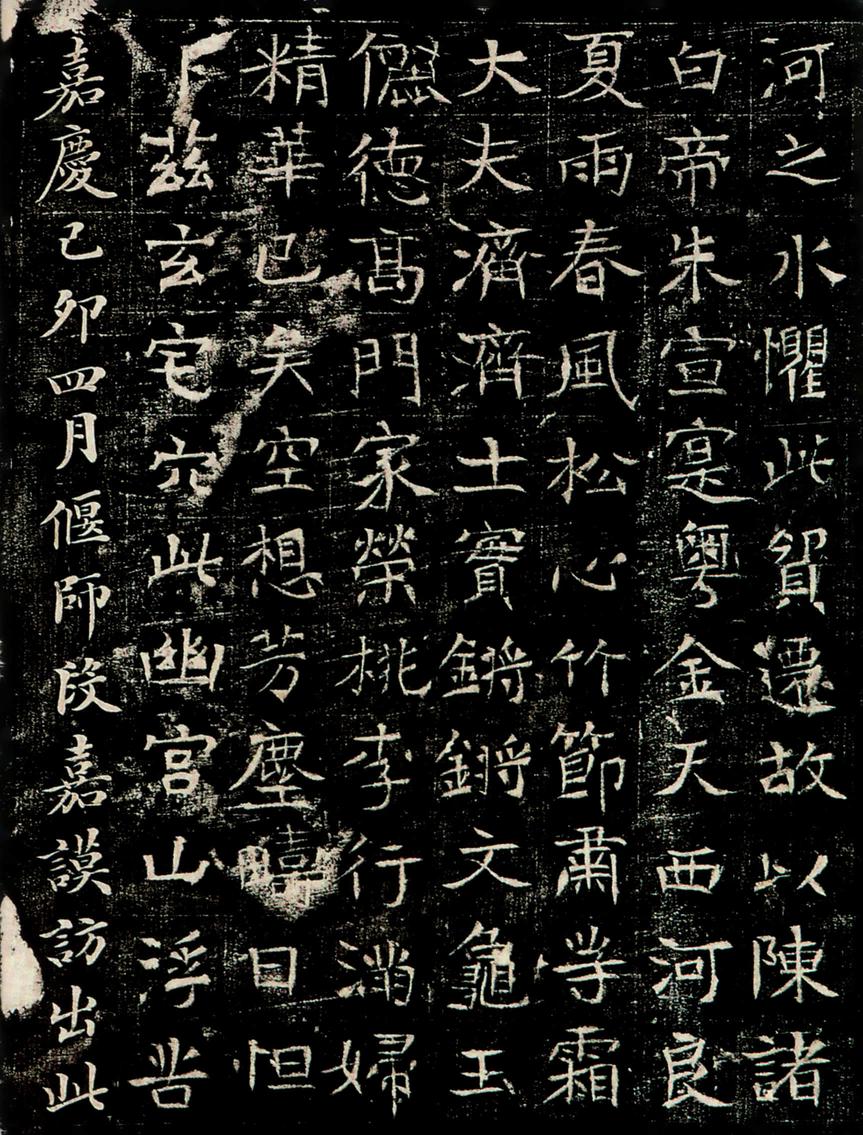 河之水懼此貿遷故以陳諸
白帝朱宣寔粵金天西河良
夏雨春風松心竹節肅等霜
大夫濟濟士實鏘鏘文龜玉
儷徳髙門家榮桃李行滿婦
精華已矣空想芳塵疇日怛
下茲玄宅穴此幽宮山浮苦
嘉慶己卯四月偃師段嘉謨訪出此